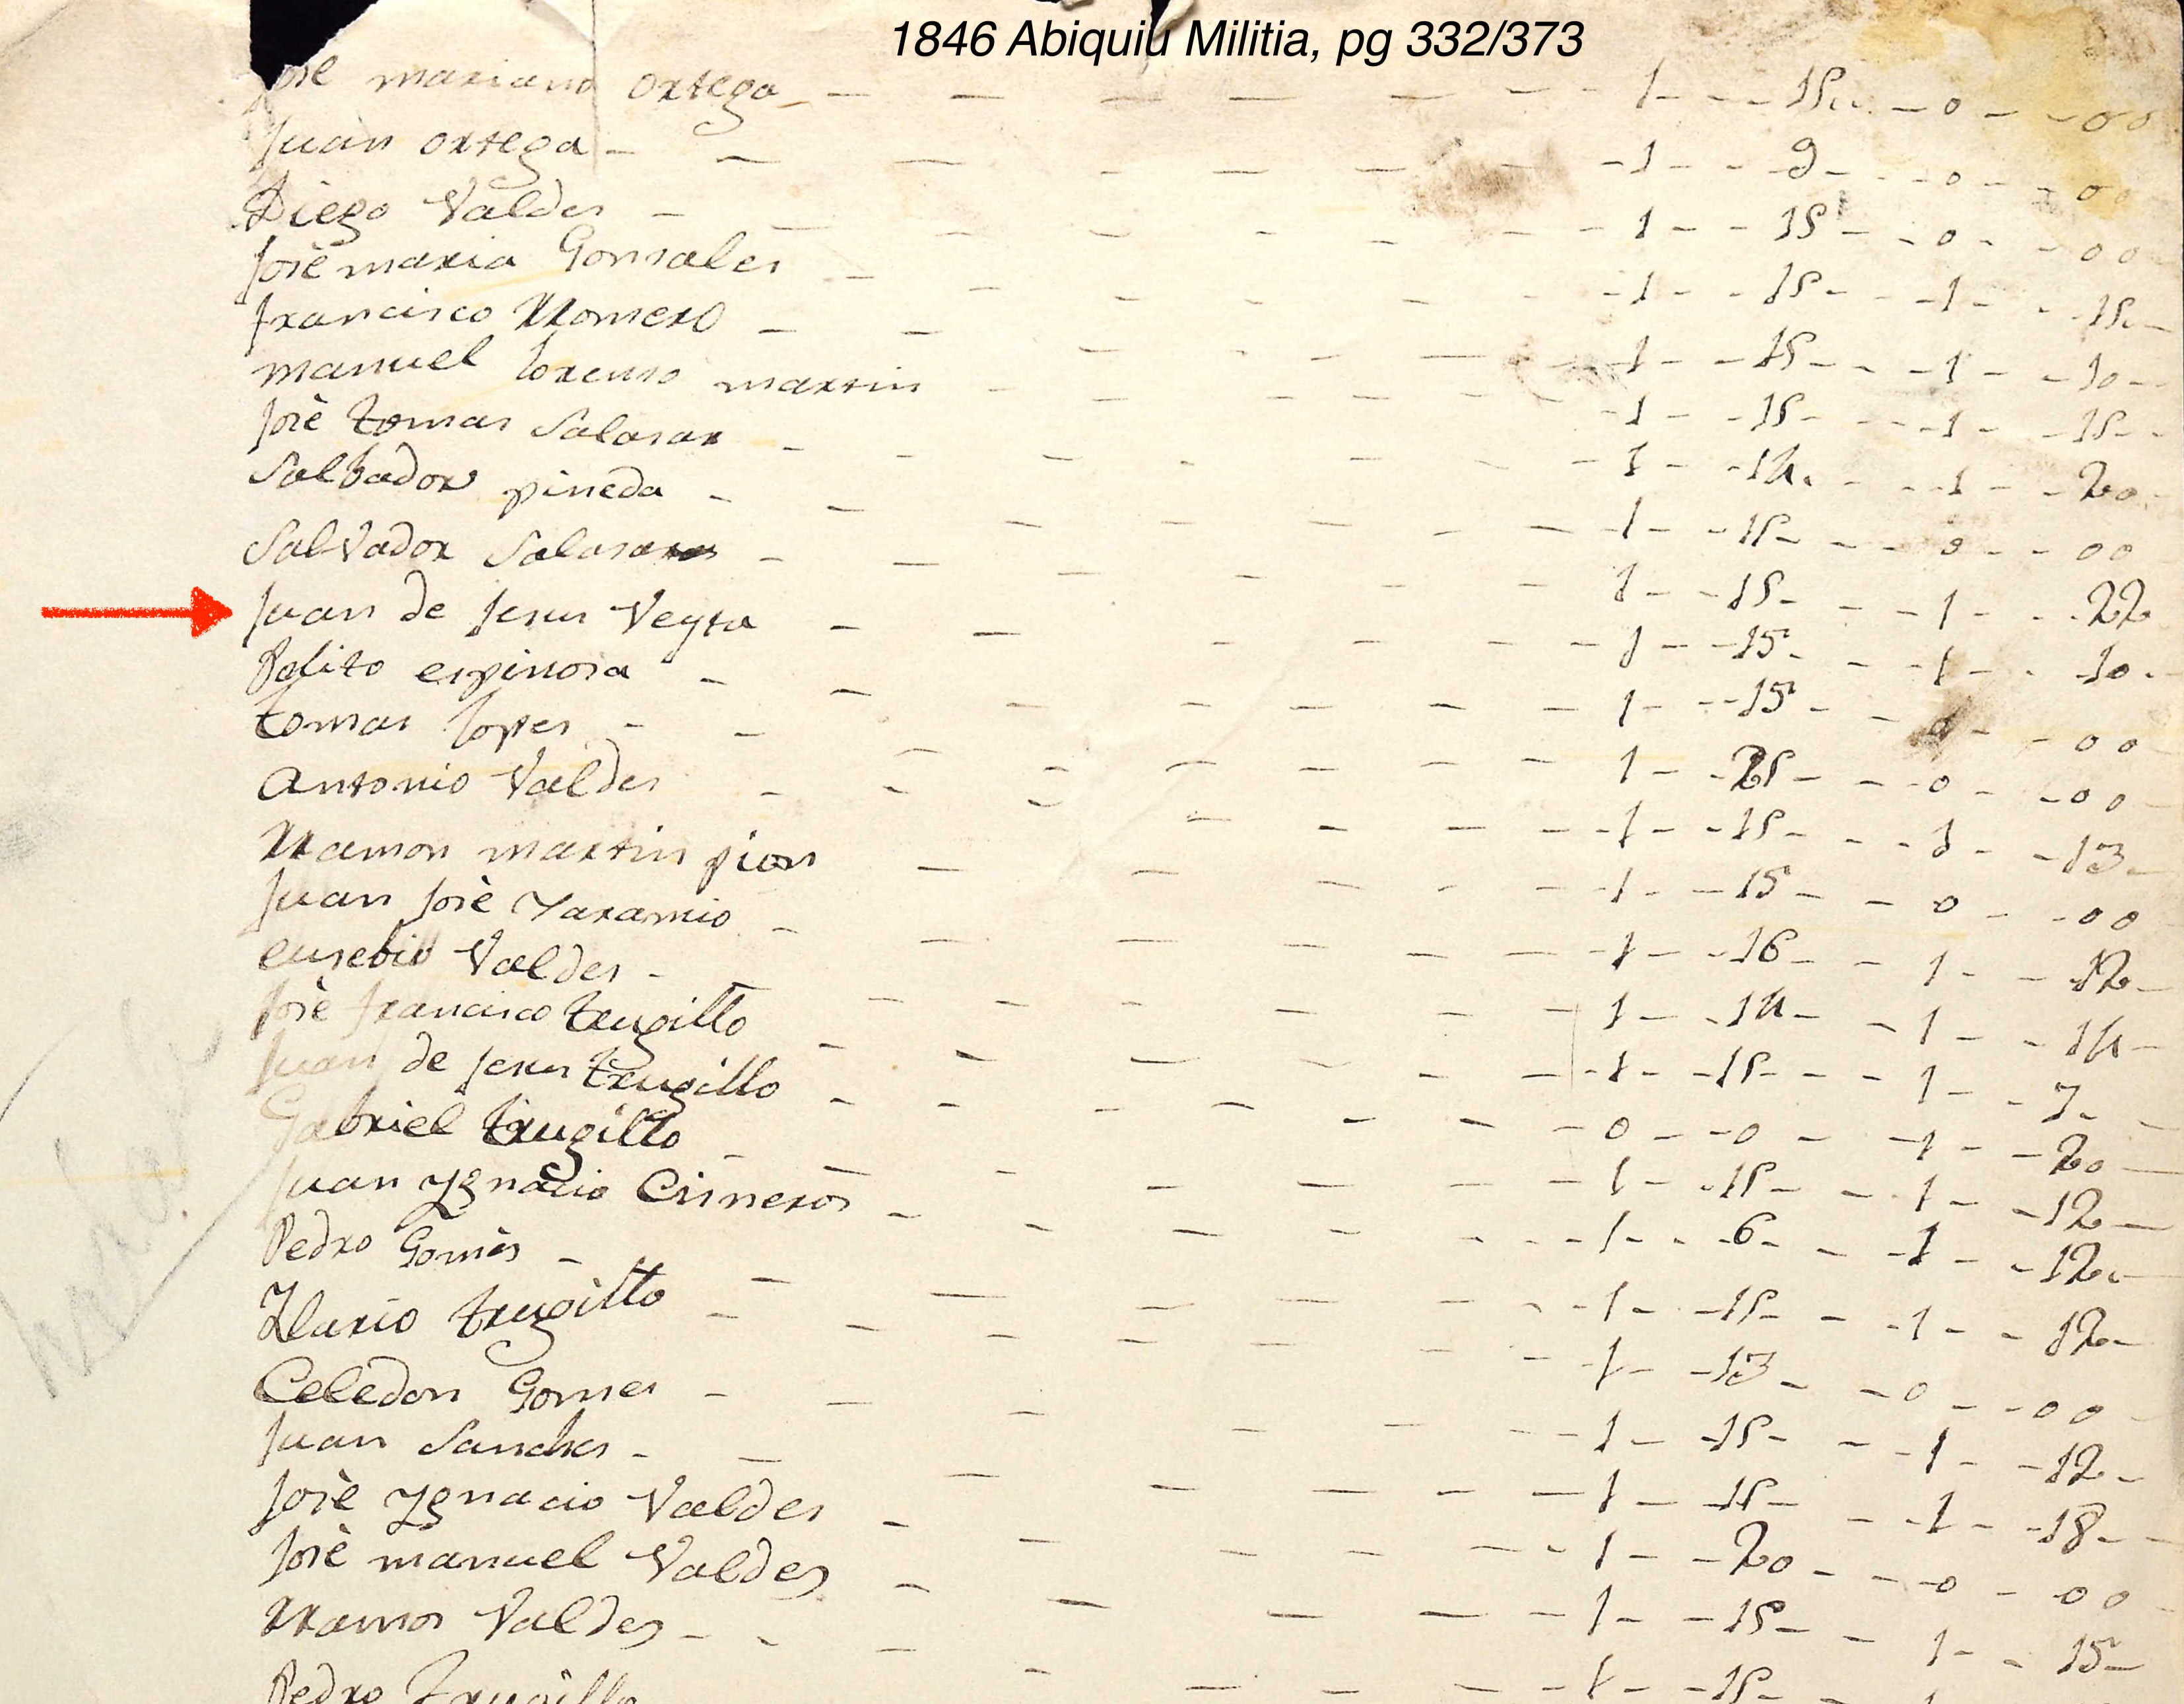 1846 Abiquiu Militia, pg 332/373
Jose mariano ortega 1 15 0 00
Juan ortega 1 9 0 00
Diego Valdes 1 15 0 00
José maria Gonsales 1 15 1 15
francisco Rromero 1 15 1 10
manuel lorenso martin 1 15 1 15
José tomas Salasar 1 14 1 20
Salbador pineda 1 15 0 00
Salvador Salasar 1 15 1 22
Juan de Jesus Veyta 1 15 1 10
Polito espinosa 1 15 0 00
tomas lopes 1 25 0 00
Antonio Valdes 1 15 1 13
Rramon martin pion 1 15 0 00
Juan José Yaramio 1 16 1 12
eusebio Valdes 1 14 1 14
José francisco trugillo 1 15 1 7
Juan de Jesus trugillo 0 0 1 20
Gabriel trugillo 1 15 1 12
Juan Ygnacio Cisneros 1 6 1 12
Pedro Gomes 1 15 1 12
Ylario trugillo 1 13 0 00
Celedon Gomes 1 15 1 12
Juan Sanches 1 15 1 18
José Ygnacio Valdes 1 20 0 00
José manuel Valdes 1 15 1 15
Rramon Valdes 1 15 1
Pedro Trugillo